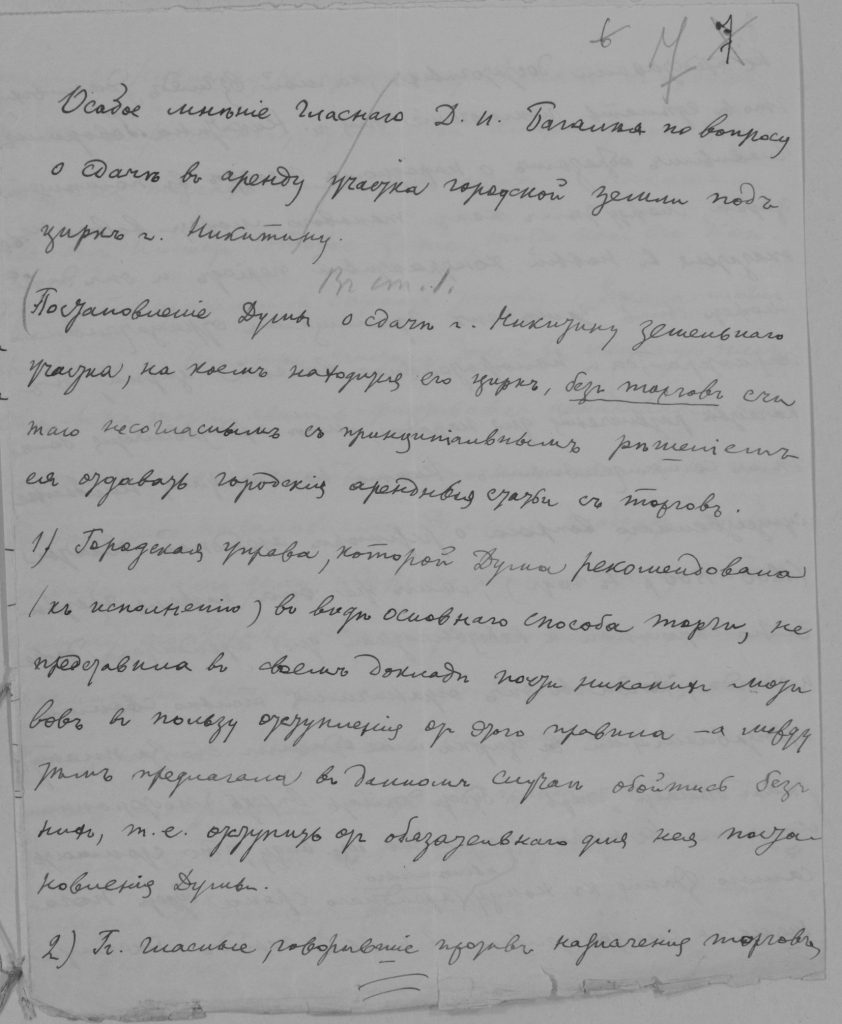 6 7
Особое мнѣніе гласнаго Д. И. Багалѣя по вопросу
о сдачѣ въ аренду участка городской земли подъ
циркъ г. Никитину.
Постановленіе Думы о сдачѣ г. Никитину земельнаго
участка, на коемъ находится его циркъ, безъ торговъ счи
таю несогласнымъ съ принципіальнымъ рѣшеніемъ
ея отдавать городскія арендныя статьи съ торговъ.
1) Городская управа, которой Дума рекомендовала
(къ исполненію) въ видѣ основнаго способа торги, не
представила въ своемъ докладѣ почти никакихъ моти
вовъ въ пользу отступленія отъ этого правила – а между
тѣмъ предлагала въ данномъ случаѣ обойтись безъ
нихъ, т. е. отступить отъ обязательнаго для нея поста-
новленія Думы.
2) Гг. гласные, говорившіе противъ назначенія торговъ,